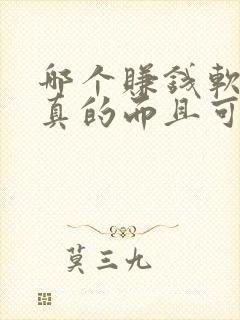 哪个赚钱软
真的而且可
莫三九